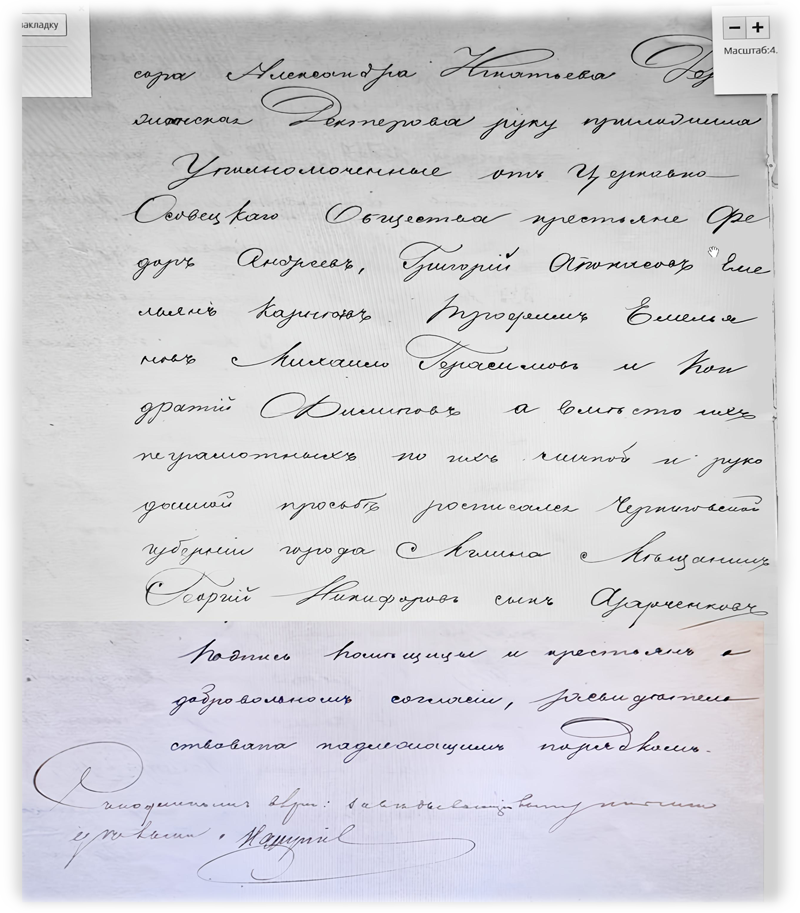 акладку
Масштаб:4.
сора Александра Игнатьева
Дехтерова руку приложила
Уполномоченные отъ Церковно-
Осовецкаго Общества крестьяне Фе
доръ Андреевъ, Григорій Еме
льянъ Трофимъ Емелья
новъ Михаило Герасимовъ и Кон
дратій Филиповъ а вместо ихъ
неграмотныхъ по ихъ личной и руко
данной просьбѣ росписался Черниговской
губерніи города Мглина Мѣщанинъ
Георгій Никифоровъ сынъ Азарченковъ
Подпись помѣщицы и крестьянъ о
добровольномъ согласіи, засвидѣтель
ствована надлежащимъ порядкомъ.